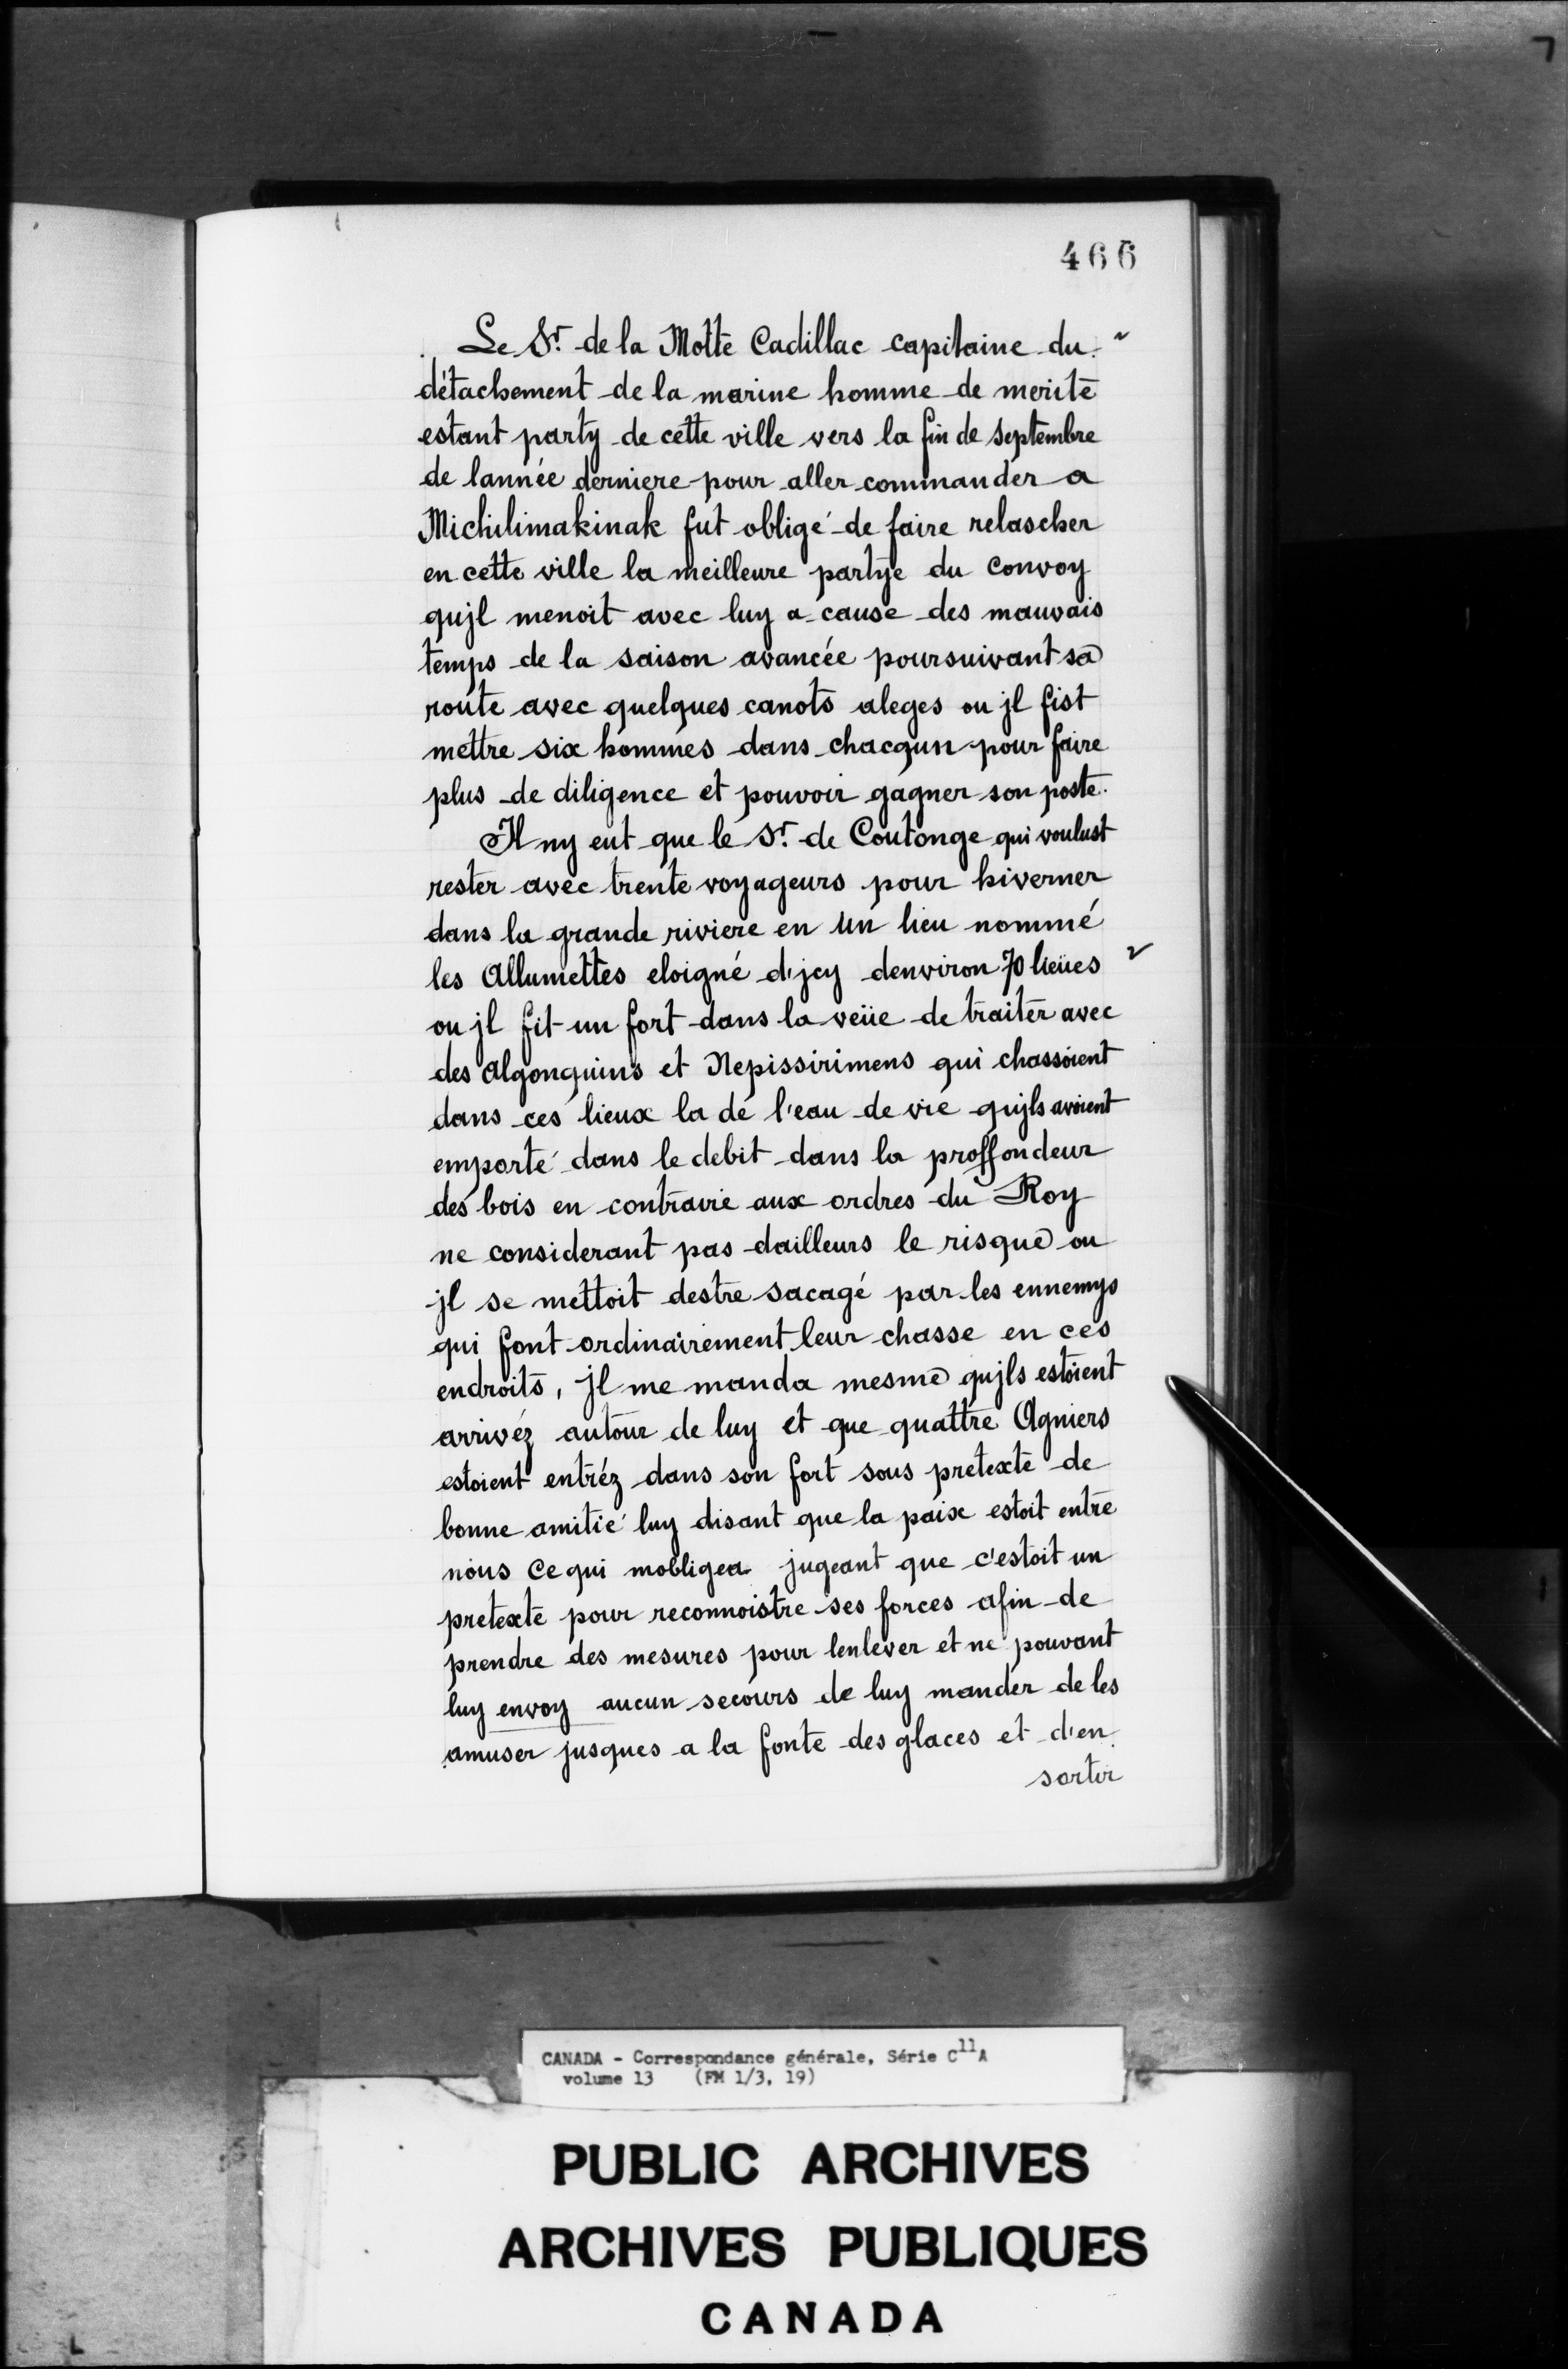 466
Le Sr. de la Motte Cadillac capitaine du
détachement de la marine homme de merite
estant party de cette ville vers la fin de septembre
de lannée derniere pour aller commander a
Michilimakinak fut obligé de faire relascher
en cette ville la meilleure partye du convoy
qujl menoit avec luy a cause des mauvais
temps de la saison avancée poursuivant sa
route avec quelques canots aleges ou jl fist
mettre six hommes dans chacqun pour faire
plus de diligence et pouvoir gagner son poste.
Il ny eut que le Sr. de Coutonge qui voulust
rester avec trente voyageurs pour hiverner
dans la grande riviere en un lieu nommé
les Allumettes eloigné d'jcy denviron 70 lieües
ou jl fit un fort dans la veüe de traiter avec
des Algonquins et Nepissirimens qui chassoient
dans ces lieux la de l'eau de vie qujls avoient
emporté dans le debit dans la proffondeur
des bois en contravie aux ordres du Roy
ne considerant pas dailleurs le risque ou
jl se mettoit destre sacagé par les ennemys
qui font ordinairement leur chasse en ces
endroits, jl me manda mesme qujls estoient
arrivéz autour de luy et que quattre Agniers
estoient entréz dans son fort sous pretexte de
bonne amitié luy disant que la paix estoit entre
nous ce qui mobligea jugeant que c'estoit un
pretexte pour reconnoistre ses forces afin de
prendre des mesures pour lenlever et ne pouvant
luy envoy aucun secours de luy mander de les
amuser jusques a la fonte des glaces et d'en
sortir
CANADA - Correspondance générale, Série C11A
volume 13 (FM 1/3, 19)
PUBLIC ARCHIVES
ARCHIVES PUBLIQUES
CANADA